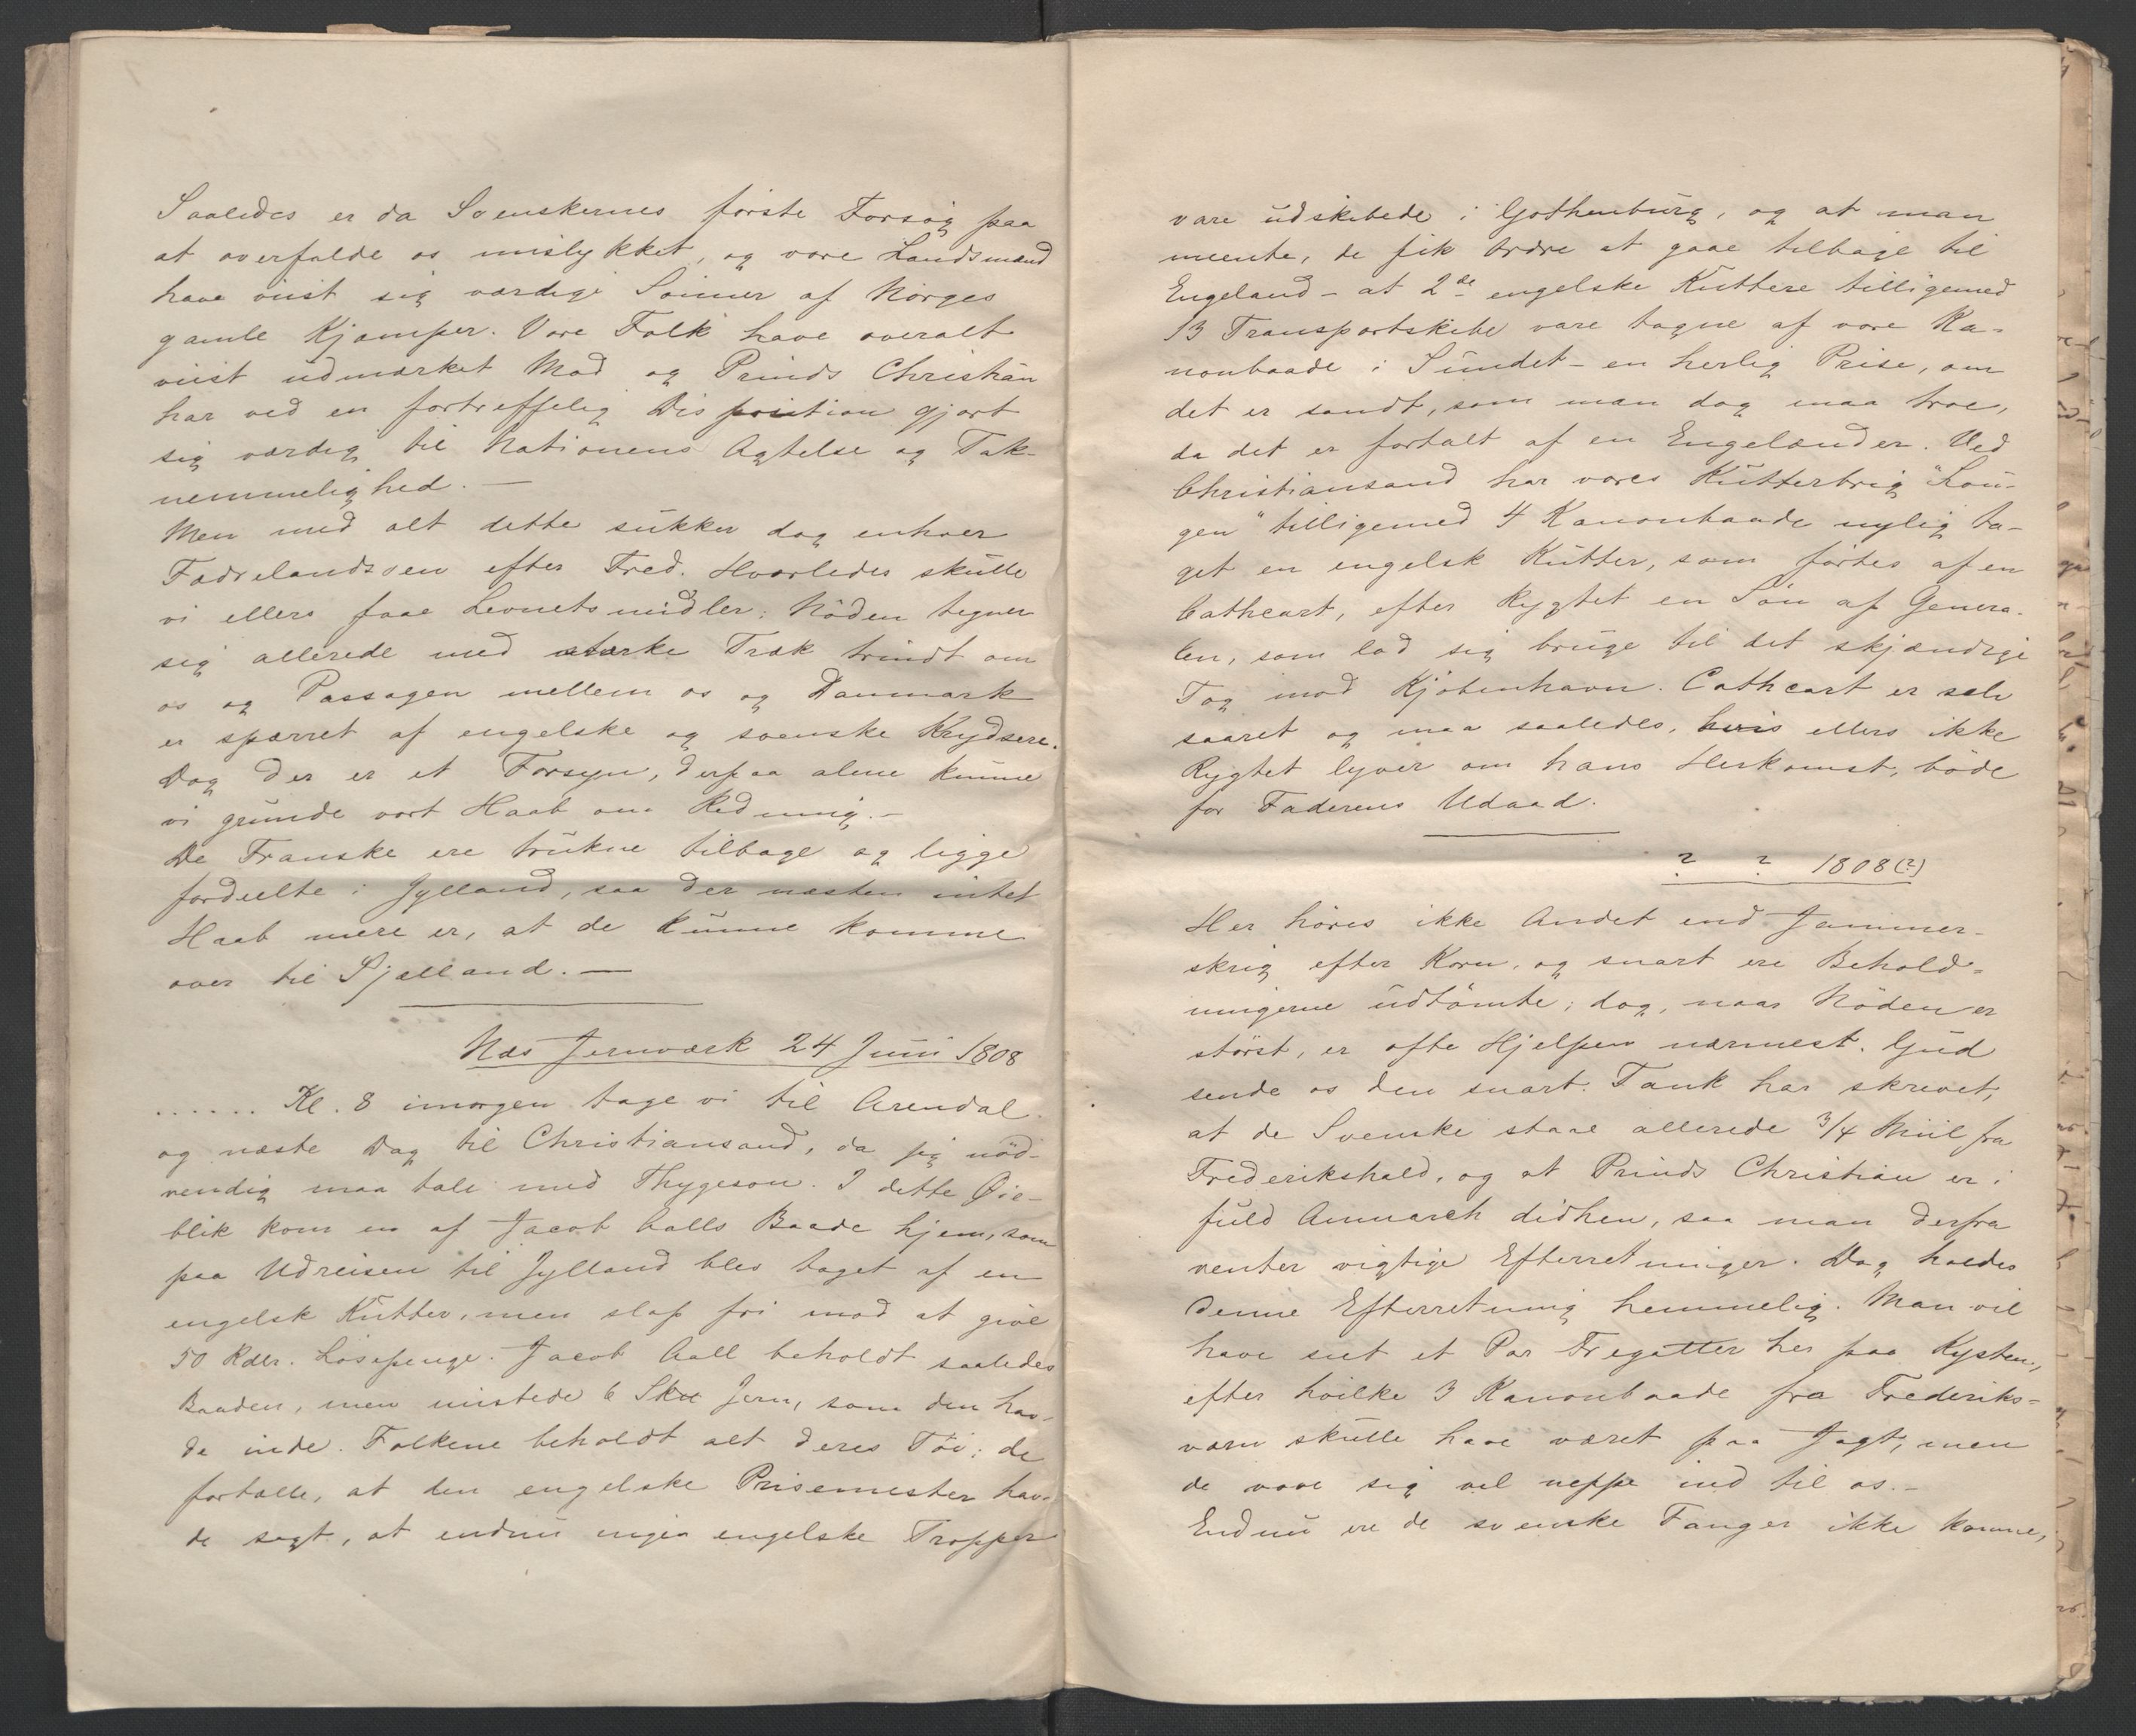 Saaledes er da Svenskernes første Forsøg paa
at overfalde os mislykket, og vore Landsmænd
have viist sig værdige Sønner af Norges
gamle Kjæmper. Vore Folk have overalt
viist udmærket Mod og Prinds Christian
har ved en fortreffelig Disposition gjort
sig værdig til Nationens Agtelse og Tak-
nemmelighed. —
Men med alt dette sukker dog enhver
Fædrelandsven efter Fred. Hvorledes skulle
vi ellers faae Levnetsmidler; Nöden tegner
sig allerede med stærke Træk trindt om
os og Passagen mellem os og Danmark
er spærret af engelske og svenske Krydsere.
Dog der er et Forsyn, derpaa alene kunne
vi grunde vort Haab om Redning. —
De Franske ere trukne tilbage og ligge
fordeelte i Jylland, saa der næsten intet
Haab mere er, at de kunne komme
over til Sjælland. —
Næs Jernværk 24 Juni 1808
...... Kl. 8 imorgen tage vi til Arendal
og næste Dag til Christiansand, da jeg nöd-
vendig maa tale med Thygeson. I dette Øie-
blik kom en af Jacob Aalls Baade hjem, som
paa Udreisen til Jylland blev taget af en
engelsk Kutter, men slap fri mod at give
50 Rdlr. Lösepenge. Jacob Aall beholdt saaledes
Baaden, men mistede 6 Jern, som den hav-
de inde. Folkene beholdt alt deres Töi; de
fortælle, at den engelske Prisemester hav-
de sagt, at endnu ingen engelske Tropper
vare udskibede i Gothenburg, og at man
meente, de fik Ordre at gaae tilbage til
Engeland – at 2de engelske Kuttere tilligemed
13 Transportskibe vare tagne af vore Ka-
nonbaade i Sundet – en herlig Prise, om
det er sandt, som man dog maa troe,
da det er fortalt af en Engelænder. Ved
Christiansand har vores Kutterbrig "Lou-
gen" tilligemed 4 Kanonbaade nylig ta-
get en engelsk Kutter, som förtes af en
Cathcart, efter Rygtet en Sön af Genera-
len, som lod sig bruge til det skjændige
Tog mod Kjöbenhavn. Cathcart er selv
saaret og maa saaledes, hvis ellers ikke
Rygtet lyver om hans Herkomst, böde
for Faderens Udaad.
? ? 1808(?)
Her höres ikke Andet end Jammer-
skrig efter Korn, og snart ere Behold-
ningerne udtömte; dog, naar Nöden er
störst, er ofte Hjelpen nærmest. Gud
sende os den snart. Tank har skrevet,
at de Svenske staae allerede 3/4 Miil fra
Frederikshald, og at Prinds Christian er i
fuld Anmarch didhen, saa man derfra
venter vigtige Efterretninger. Dog holdes
denne Efterretning hemmelig. Man vil
have seet et Par Fregatter her paa Kysten,
efter hvilke 3 Kanonbaade fra Frederiks-
værn skulle have været paa Jagt, men
de vove sig vel neppe ind til os. –
Endnu ere de svenske Fanger ikke komne,